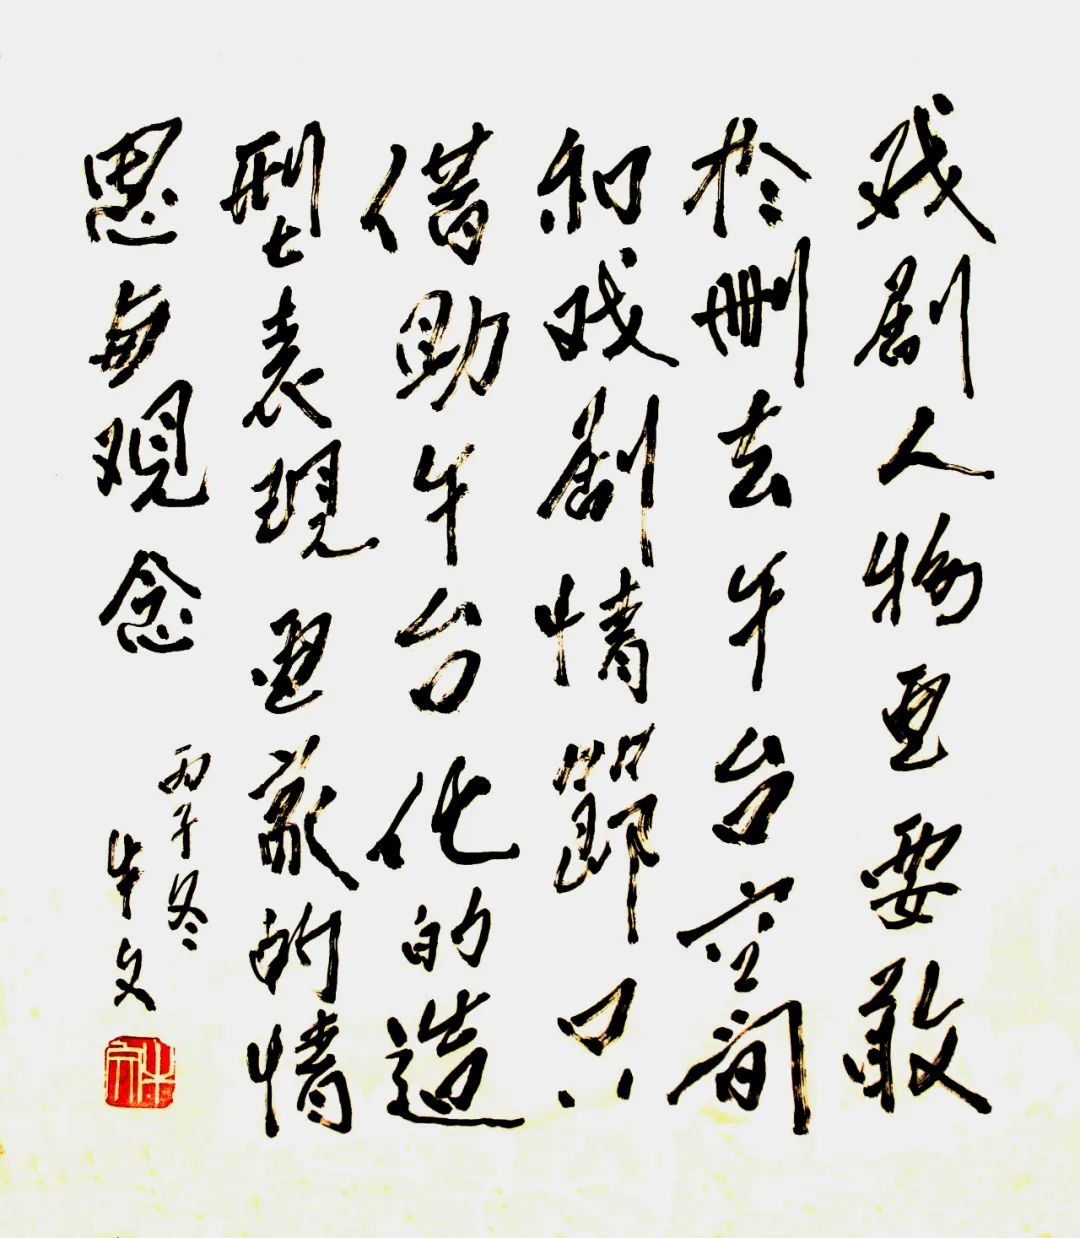 戏剧人物画要敢
於删去午台空间
和戏剧情節只
借助午台化的造
型表現画家的情
思与观念
丙子冬
牛文